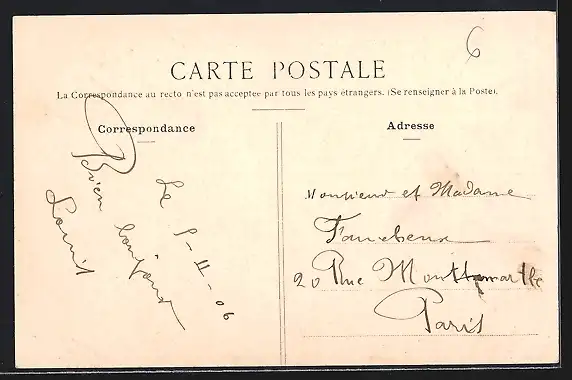 6
CARTE POSTALE
La Correspondance au recto n'est pas acceptée par tous les pays étrangers. (Se renseigner à la Poste).
Correspondance
Le 8-11-06
Bien
Louis
Adresse
Monsieur et Madame
20 Rue Montmartre
Paris